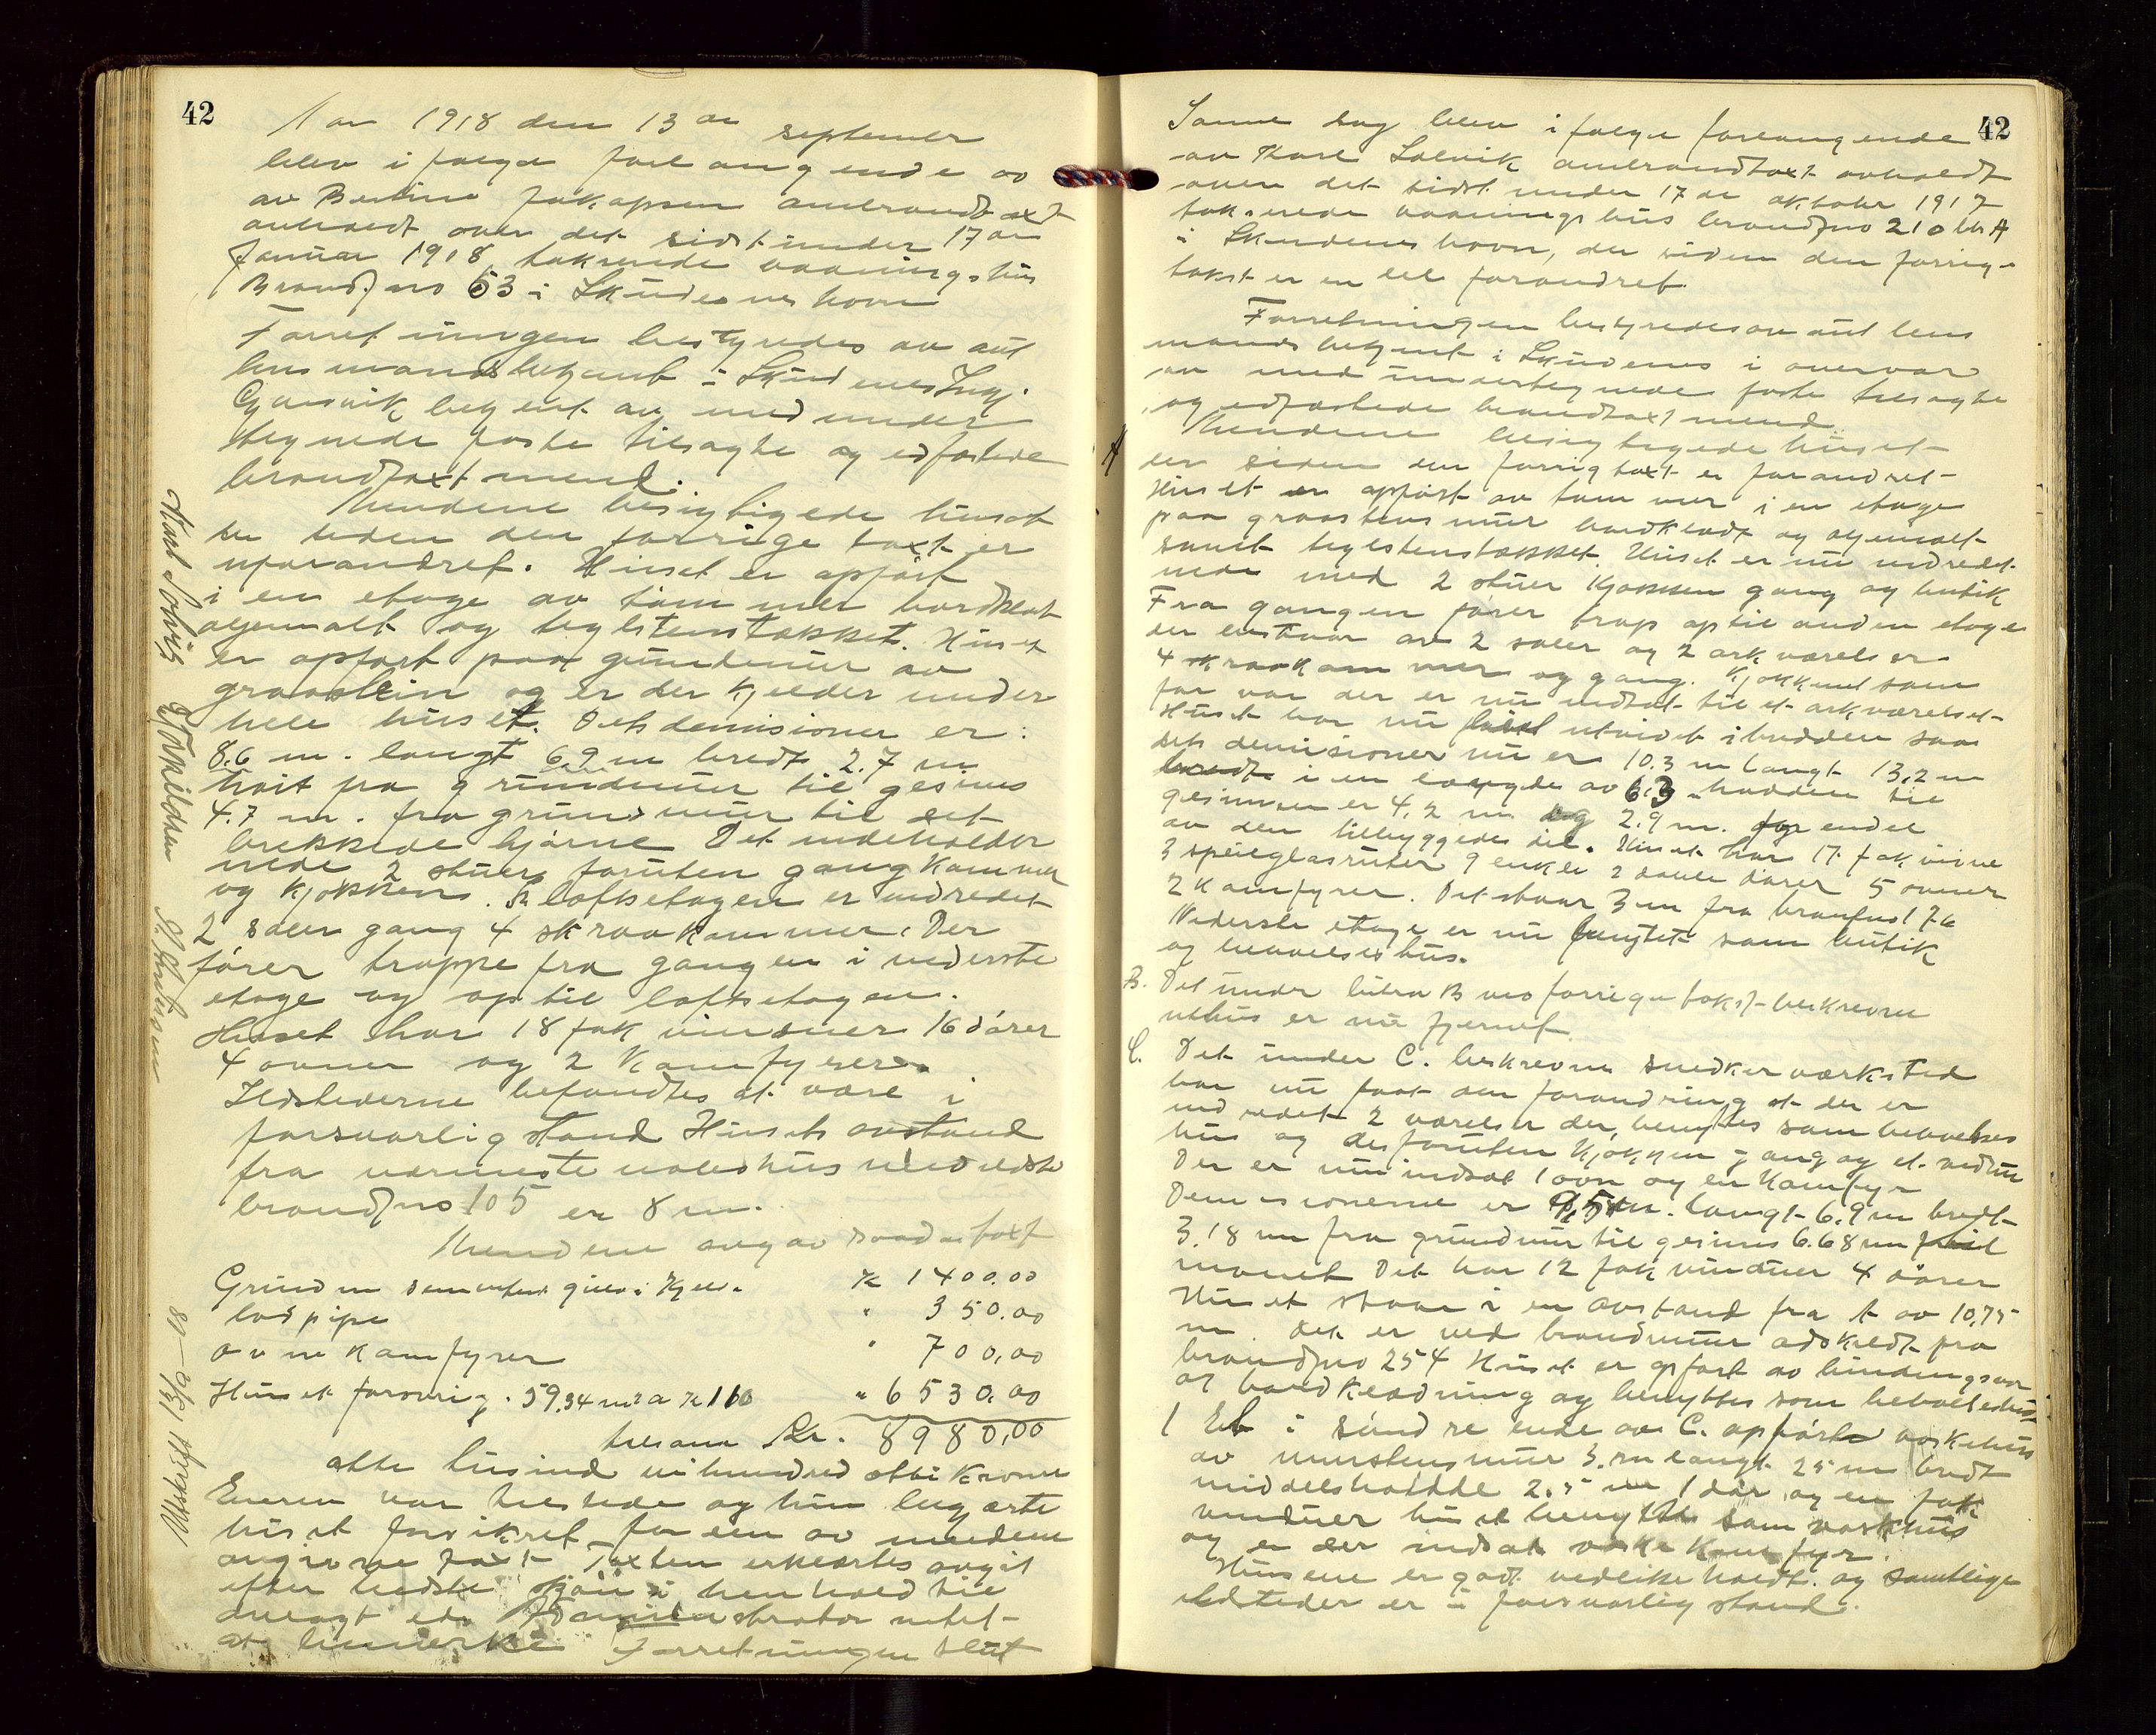 42
Aar 1918 den 13 de september
blev i følge forlangende av
av Bertine Jakopsen ombrandtaxt
avholdt over det sidst under 17 de
Januar 1918 takserede vaaningshus
Brandf no 63 i Skudeneshavn
Forretningen bestyredes av aut
lensmandsbetjent i Skudenes
Gjærvik betjent og med under
tegnede faste tilsagte og edfæstede
brandtaxtmend.
Mendene besigtigede huset
der siden den forrige taxt er
uforandret. Huset er opført
i en etage av tømmer bordklædt
oljemalt og teglstenstækket. Huset
er opført paa grundmur av
graastein og er der kjelder under
hele huset. Dets demisioner er:
8.6 m. langt 6.9 m bredt 2.7 m
høit fra grundmur til gesims
4.7 m. fra grundmur til det
brekkede hjørne Det indeholder
nede 2 stuer foruten gang kammer
og kjøkken. I loftsetagen er indredet
2 saler gang 4 skraakammer. Der
fører trappe fra gangen i nederste
etage og op til loftsetagen.
Huset har 18 fak vinduer 16 dører
4 ovner og 2 Komfyrer.
Ildstederne befandtes at være i
forsvarlig stand Husets avstand
fra nærmeste nabohus
brandf no 105 er 8 m.
Mendene avgav saadan taxt
Grundm sementert gulv i Kjeld. Kr 1400.00
lod pipe " 350.00
ovne Komfyrer " 700.00
Huset forøvrig. 59.34 m2 a Kr 110 " 6530.00
tilsam Kr. 8980.00
otte tusind nihundred otti Kroner
Eieren var tilstede og hun begjærte
huset forsikret for den av mendene
angivne taxt Taxten erklærtes avgit
efter bedste skjøn i henhold til
avlagt ed. Administrator intet
at bemerke Forretningen slut
Karl Solvig E Torkildsen
Vedtagt 13/9-18
42
Samme dag blev i følge forlangende
av Karl Solvik ombrandtaxt avholdt
over det sidst under 17 de oktober 1917
takserede vaaningshus brandf no 210 litr A
i Skudeneshavn, der siden den forrige
takst er en del forandret.
Forretningen bestyredes av aut lens
mandsbetjent i Skudenes i overvær
av med undertegnede faste tilsagte
og edfæstede brandtaxtmend
A Mendene besigtigede huset
der siden den forrige taxt er forandret
Huset er opført av tømmer i en etage
paa graastensmur bordklædt og oljemalt
samt teglstenstækket. Huset er nu indredet
nede med 2 stuer Kjøkken gang og butik
Fra gangen fører trap op til anden etage
der bestaar av 2 saler og 2 arkværelser
4 skraakammer og gang. Kjøkkenet som
før var der er nu indsat til et arkværelset
Huset har nu utvidet i bredden saa
dets demisioner nu er 10.3 m langt 13.2 m
bredt i en længde av 6.3 høiden til
gesimsen er 4.2 m og 2.9 m. for endel
av den tilbyggede del. Huset har 17 fak vindue
3 speilglasruter 9 enkle 2 doble dører 5 ovner
2 Komfyrer. Det staar 3 m fra brandfno 176
Nederste etage er nu benyttet som butik
og beboelseshus.
B. Det under litra B ved forrige takst beskrevne
uthus er nu fjernet
C. Det under C. beskrevne snedkerværksted
har nu faat den forandring at der er
indredet 2 værelser der, benyttes som beboelses
hus og desforuten Kjøkken gang og et vedrum
Der er nu indsat 1 ovn og en Komfyr
Demisionerne er 9,5 m. langt 6.9 m bredt
3.18 m fra grundmur til gesims 6.68 m til
mønet Det har 12 fak vinduer 4 dører
Huset staar i en avstand fra A av 10,75
m. det er ved brandmur adskildt fra
brandfno 254 Huset er opført av bindingsverk
og bordklædning og benyttes som beboelseshus
1 Et i søndre ende av C. opført vaskehus
av murstensmur 3. m langt 2.5 m bredt
middelshøide 2.5 m 1 dør og en fak
vinduer huset benyttes som vaskehus
og er der indsat vaske Komfyr.
Husene er godt vedlikeholdt og samtlige
ildsteder er i forsvarlig stand.